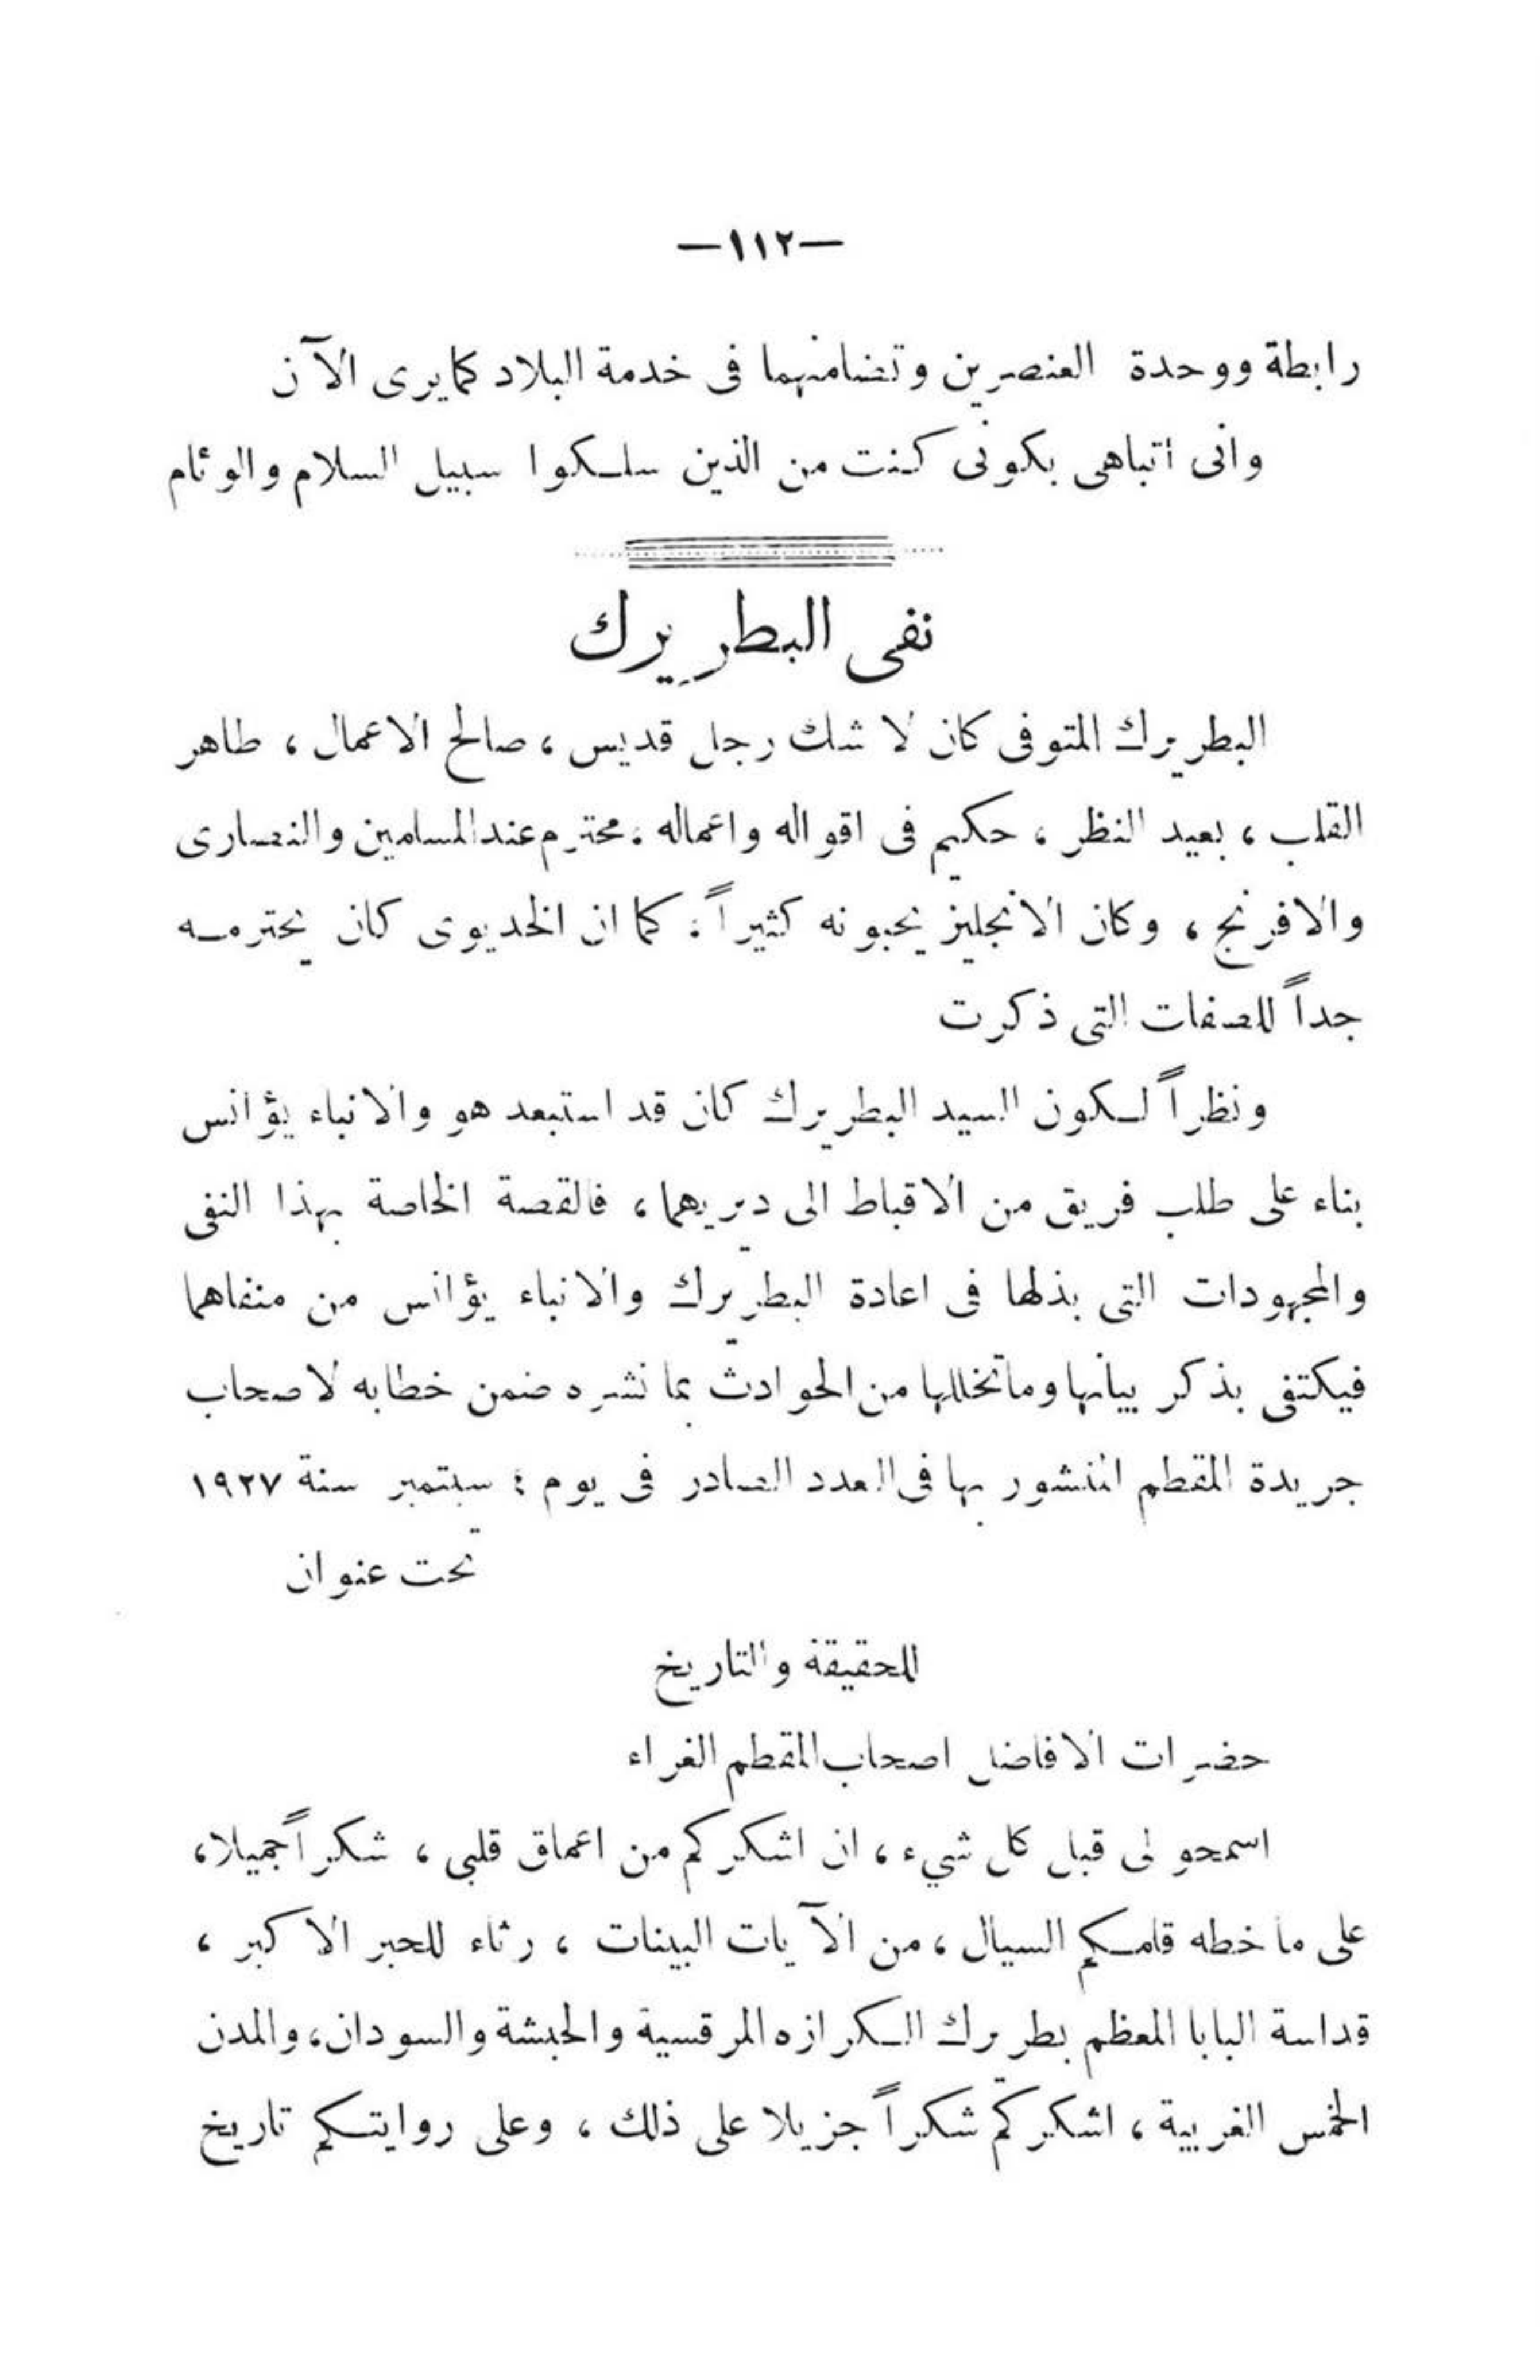 —١١٢—
رابطة ووحدة العنصرين وتضامنهما فى خدمة البلاد كما يرى الآن
وانى اتباهى بكونى كنت من الذين سلكوا سبيل السلام والوئام
نفى البطريرك
البطريرك المتوفى كان لا شك رجل قديس ، صالح الاعمال ، طاهر
القلب ، بعيد النظر ، حكيم فى اقواله واعماله ، محترم عند المسلمين والنصارى
والافرنج ، وكان الانجليز يحبونه كثيراً ، كما ان الخديوى كان يحترمه
جداً للصفات التى ذكرت
ونظراً لكون السيد البطريرك كان قد استبعد هو والانباء يؤانس
بناء على طلب فريق من الاقباط الى ديريهما ، فالقصة الخاصة بهذا النفى
والمجهودات التى بذلها فى اعادة البطريرك والانباء يؤانس من منفاهما
فيكتفى بذكر بيانها وما تخللها من الحوادث بما نشره ضمن خطابه لاصحاب
جريدة المقطم المنشور بها فى العدد الصادر فى يوم سبتمبر سنة ١٩٢٧
تحت عنوان
للحقيقة والتاريخ
حضرات الافاضل اصحاب المقطم الغراء
اسمحو لى قبل كل شيء ، ان اشكركم من اعماق قلبى ، شكراً جميلا ،
على ما خطه قلمكم السيال ، من الآيات البينات ، رثاء للحبر الاكبر ،
قداسة البابا المعظم بطريرك الكرازه المرقسية والحبشة والسودان ، والمدن
الخمس الغربية ، اشكركم شكراً جزيلا على ذلك ، وعلى روايتكم تاريخ